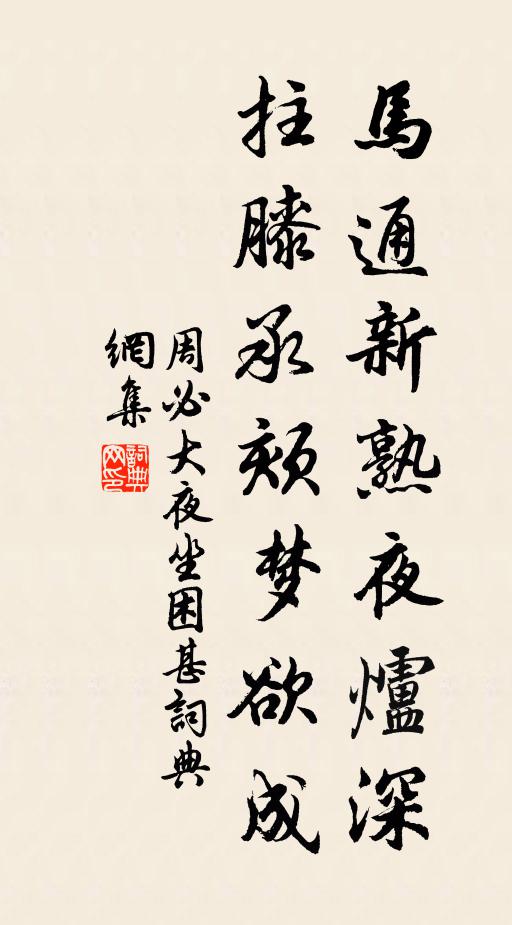 馬通新熟夜爐深
拄膝承頦梦欲成
周必大夜坐困甚詞典
網集
詞典
网印